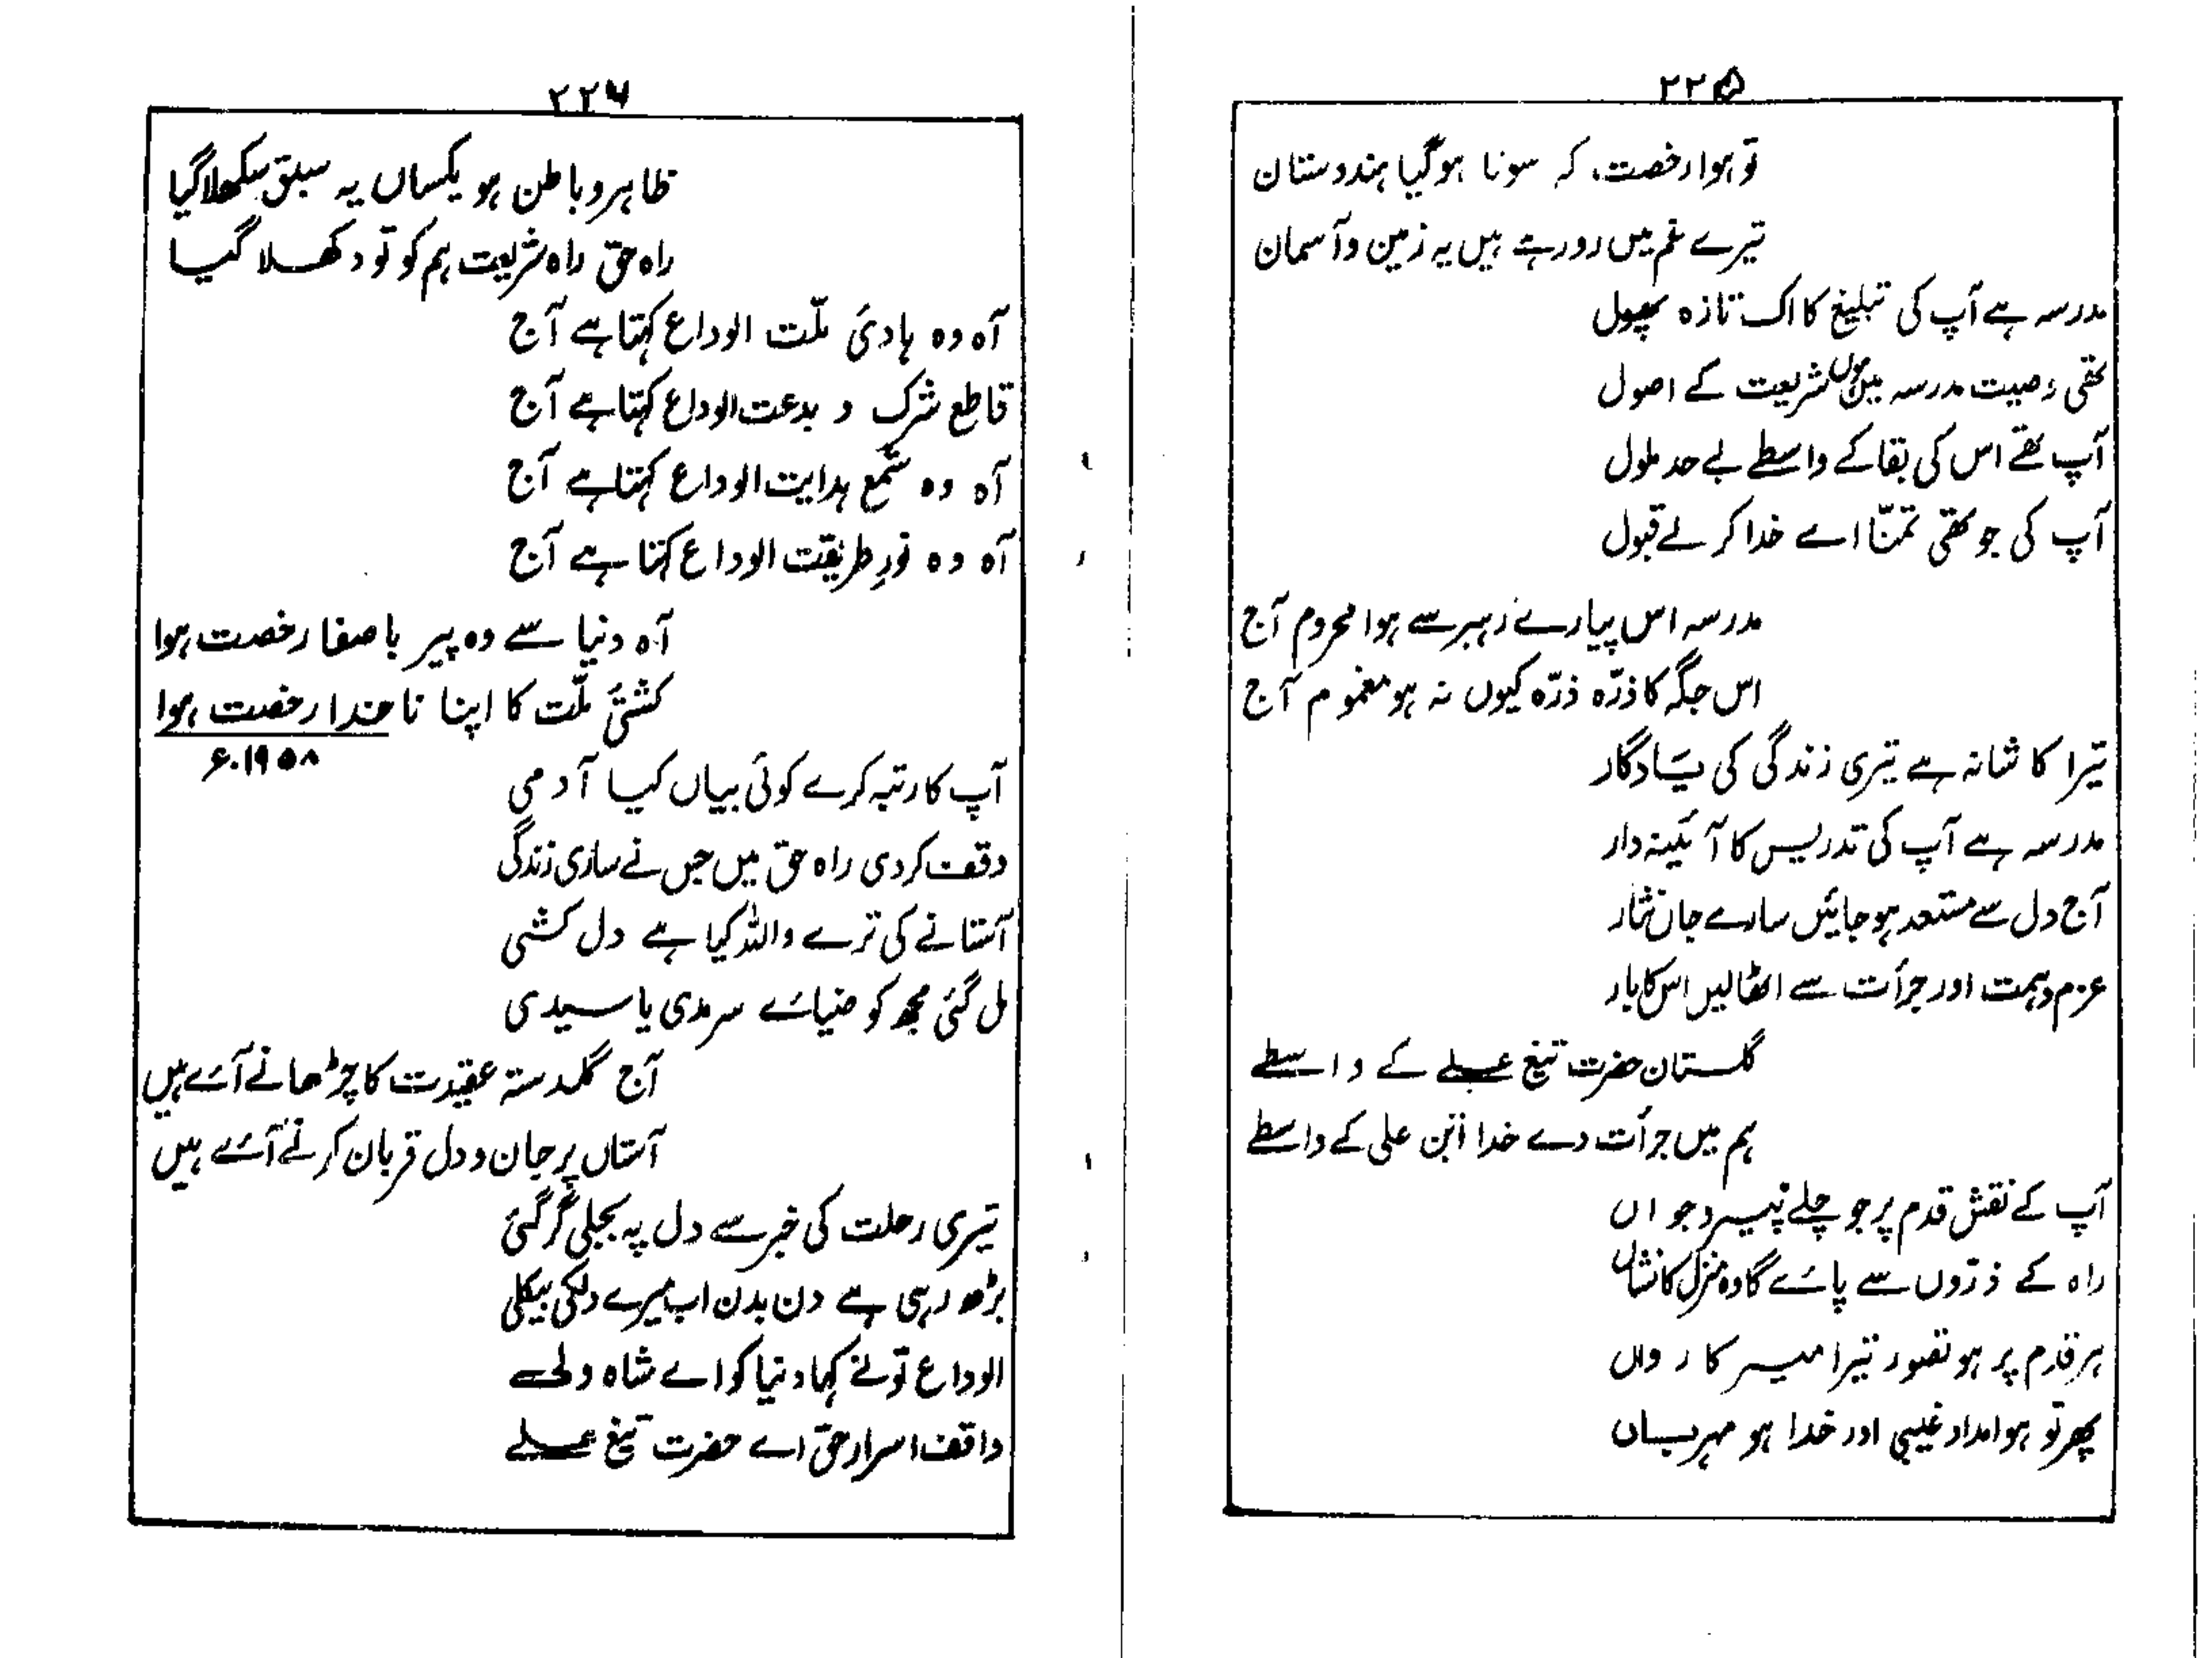 ۲۲۵
تو ہوا رخصت، کہ سونا ہو گیا ہندوستان
تیرے غم میں رو رہے ہیں یہ زمین و آسمان
مدرسہ ہے آپ کی تبلیغ کا اک تازہ پھول
تھی وصیت مدرسہ میں ہوں شریعت کے اصول
آپ تھے اس کی بقا کے واسطے بے حد ملول
آپ کی جو تھی تمنّا اے خدا کر لے قبول
مدرسہ اس پیارے رہبر سے ہوا محروم آج
اس جگہ کا ذرّہ ذرّہ کیوں نہ ہو مغموم آج
تیرا کاشانہ ہے تیری زندگی کی یادگار
مدرسہ ہے آپ کی تدریس کا آئینہ دار
آج دل سے مستعد ہو جائیں سارے جاں نثار
عزم و ہمت اور جرأت سے اٹھالیں اس کا بار
گلستان حضرت تیغ علی کے واسطے
ہم میں جرأت دے خدا ابن علی کے واسطے
آپ کے نقش قدم پر جو چلے پیر و جواں
راہ کے ذرّوں سے پائے گا وہ منزل کا نشاں
ہر قدم پر ہو تصور تیرا میر کارواں
پھر تو ہو امداد غیبی اور خدا ہو مہرباں
۲۲۶
ظاہر و باطن ہو یکساں یہ سبق سکھلا گیا
راہ حق راہ شریعت ہم کو تو دکھلا گیا
آہ وہ ہادئ ملّت الوداع کہتا ہے آج
قاطع شرک و بدعت الوداع کہتا ہے آج
آہ وہ شمع ہدایت الوداع کہتا ہے آج
آہ وہ نورِ طریقت الوداع کہتا ہے آج
آہ دنیا سے وہ پیر باصفا رخصت ہوا
کشتئ ملّت کا اپنا ناخدا رخصت ہوا
۱۹۵۸ء
آپ کا رتبہ کرے کوئی بیاں کیا آدمی
وقف کر دی راہ حق میں جس نے ساری زندگی
آستانے کی ترے واللہ کیا ہے دل کشی
مل گئی مجھ کو ضیائے سرمدی یا سیدی
آج گلدستہ عقیدت کا چڑھانے آئے ہیں
آستاں پر جان و دل قربان کرنے آئے ہیں
تیری رحلت کی خبر سے دل پہ بجلی گر گئی
بڑھ رہی ہے دن بدن اب میرے دل کی بیکلی
الوداع تو نے کہا دنیا کو اے شاہ ولی
واقف اسرار حق اے حضرت تیغ علی